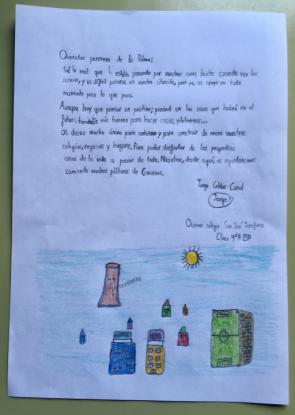 Queridas personas de La Palma:
Sé lo mal que lo estáis pasando por vuestras casas
y es difícil ponerse en vuestra situación, pero yo, os apoyo en todo
momento pase lo que pase.
Aunque hay que pensar en positivo; pensad en las cosas que habrá en el
futuro, tendréis más terreno para hacer casas,
Os deseo mucho ánimo para continuar y para construir de nuevo vuestros
colegios, negocios y hogares. Para poder disfrutar de las pequeñas
cosas de la vida a pesar de todo. Nosotros, desde aquí, os ayudaremos
comiendo muchos plátanos de Canarias.
Jorge
Jorge
colegio San José
Clase 4ºB